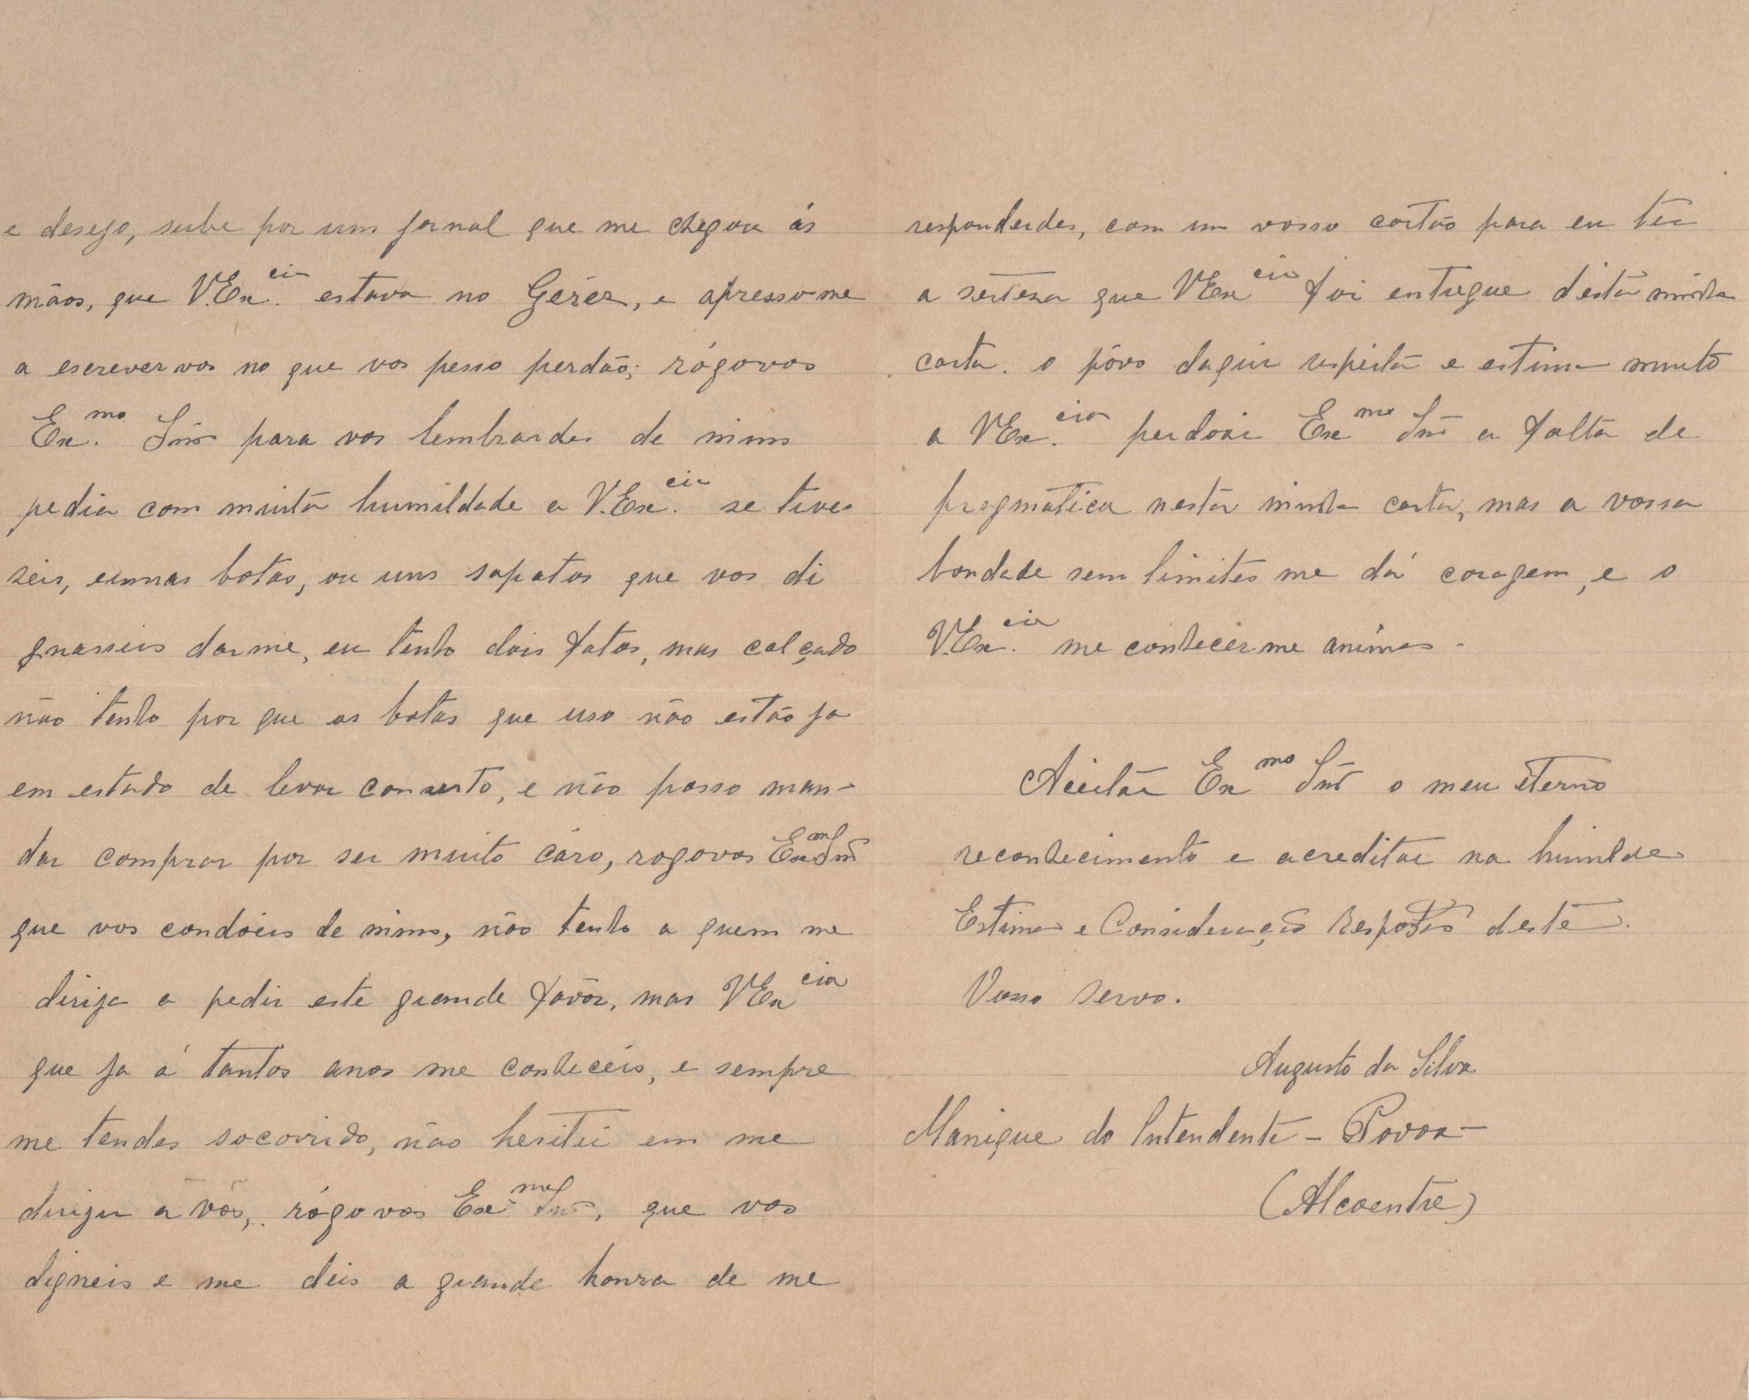 e desejo, sube por um jornal que me chegou ás
mãos, que V.Ex.cia estava no Gerez, e apresso me
a escrever vos no que vos pesso perdão; rógovos
Ex.mo Snr para vos lembrardes de mim
pedia com muita humildade a V.Ex.cia se tives
seis, eumas botas, ou uns sapatos que vos di
gnasseis darme, eu tenho dois fatos, mas calçado
não tenho por que as botas que uso não estão ja
em estado de levar conserto, e não posso man-
dar comprar por ser muito cáro, rogovos Exmo Snr
que vos condoeis de mim, não tenho a quem me
dirija a pedir este grande favôr, mas VExcia
que ja á tantos anos me conheceis, e sempre
me tendes socorrido, não hesitei em me
dirijir a vós, rógo vos Exmo Snr, que vos
digneis e me deis a grande honra de me
responderdes, com um vosso cartão para eu ter
a serteza que VExcia foi entregue desta minha
carta. o pôvo daqui respeita e estima muito
a VEx.cia perdoai Exmo Snr a falta de
pragmática nesta minha carta, mas a vossa
bondade sem limites me dá coragem, e o
V.Ex.cia me conhecer me anima -
Aceitai Exmo Snr o meu eterno
reconhecimento e acreditai na humilde
Estima e Consideração deste.
Vosso servo.
Augusto da Silva
Manique do Intendente - Povoa -
(Alcoentre)